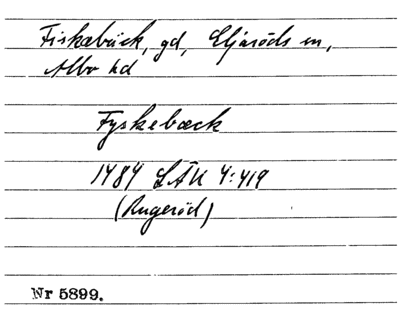 Fiskebäck, gd, Eljaröds sn,
Albo hd
Fyskebæck
1484 LÄU 4:419
(Rugeröd)
Nr 5899.